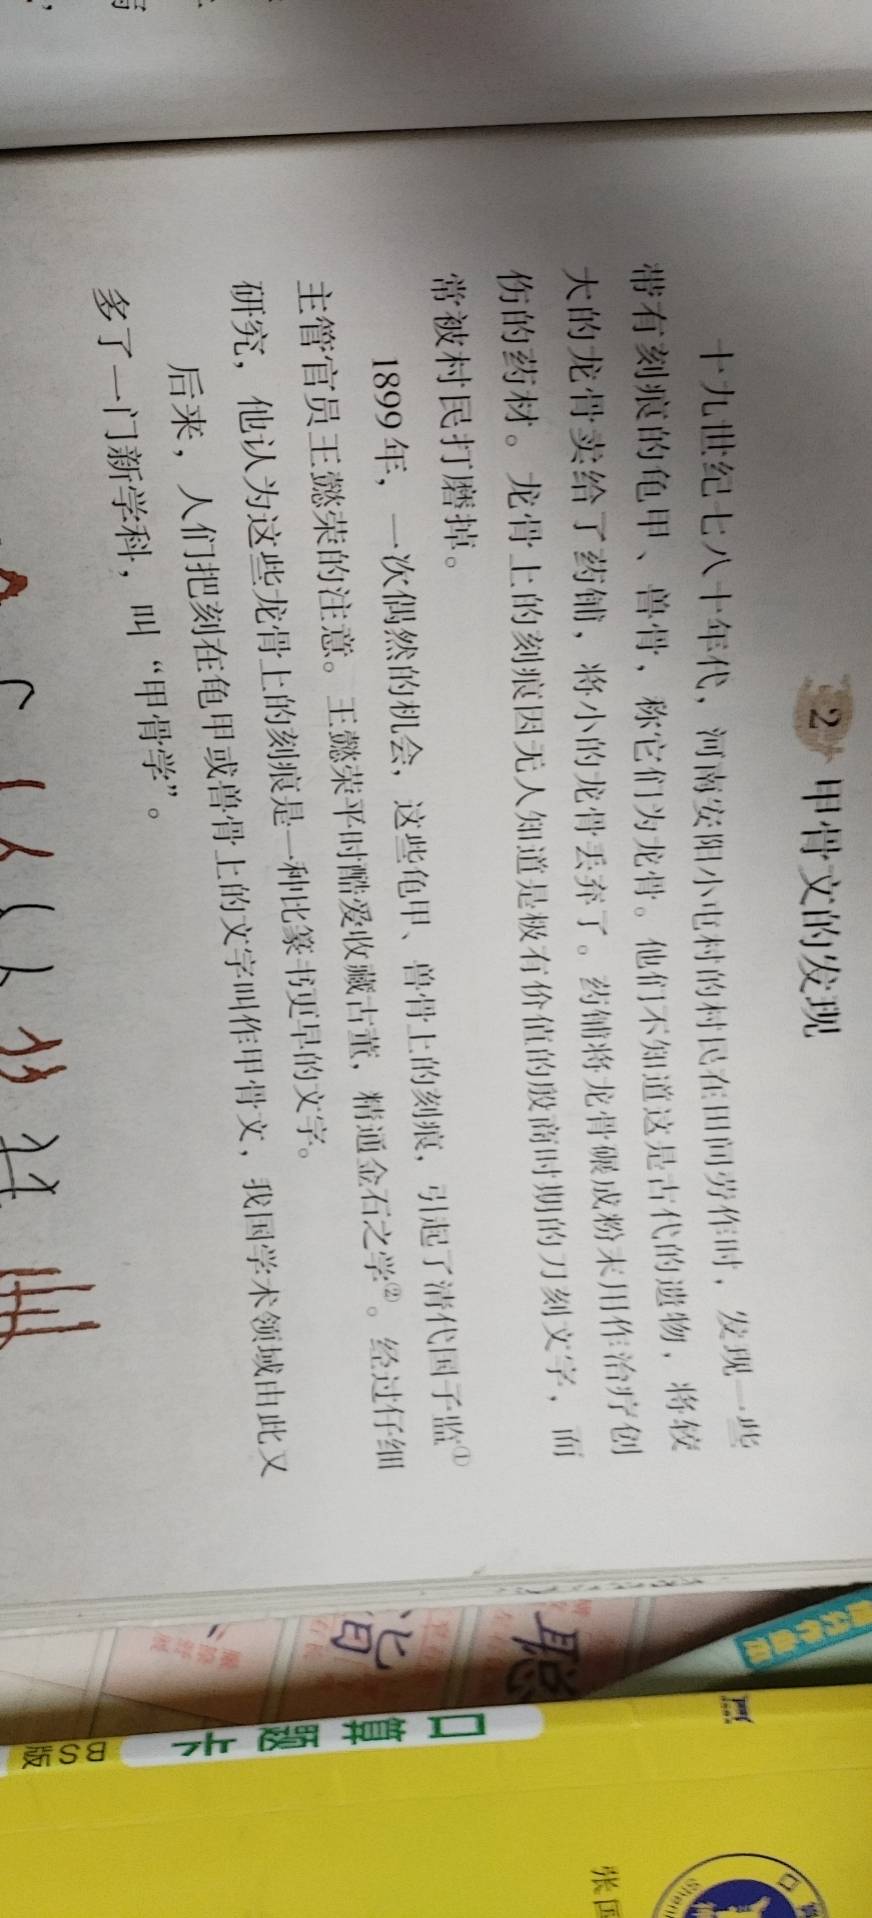 2 甲骨文的发现
十九世纪七八十年代，河南安阳小屯村的村民在田间劳作时，发现一些
带有刻痕的龟甲、兽骨，称它们为龙骨。他们不知道这是古代的遗物，将较
大的龙骨卖给了药铺，将小的龙骨丢弃了。药铺将龙骨碾成粉末用作治疗创
伤的药材。龙骨上的刻痕因无人知道是极有价值的殷商时期的刀刻文字，而
常被村民打磨掉。
1899年，一次偶然的机会，这些龟甲、兽骨上的刻痕，引起了清代国子监①
主管官员王懿荣的注意。王懿荣平时酷爱收藏古董，精通金石之学②。经过仔细
研究，他认为这些龙骨上的刻痕是一种比篆书更早的文字。
后来，人们把刻在龟甲或兽骨上的文字叫作甲骨文，我国学术领域由此又
多了一门新学科，叫“甲骨学”。
聪
口算题卡
BS版
张
口算